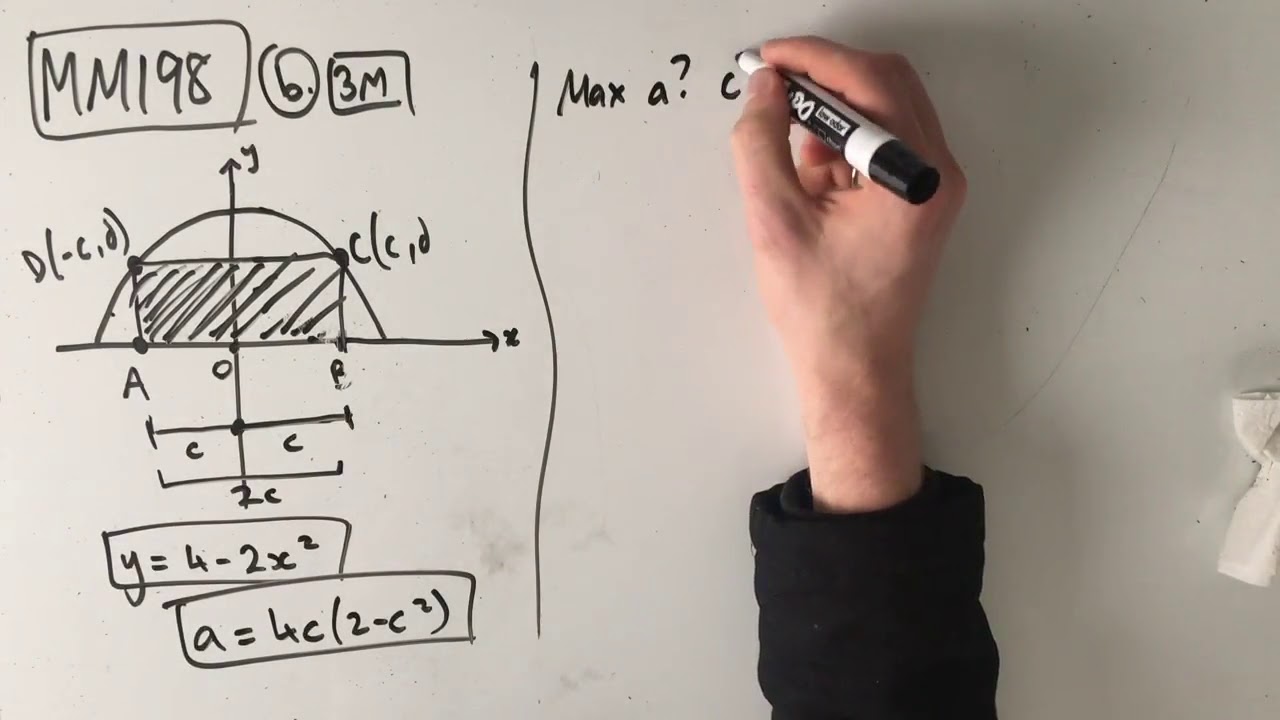 MM198 b. 3M
y
D(-c,d) C(c,d
x
A O B
c c
2c
y = 4 - 2x²
a = 4c(2-c²)
Max a? c
low odor